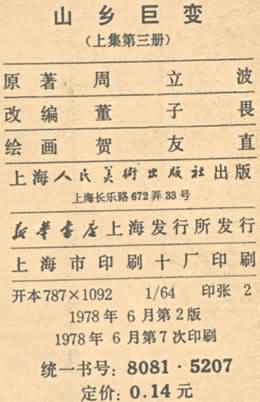 山乡巨变
（上集第三册）
原著 周立波
改编 董子畏
绘画 贺友直
上海人民美術出版社出版
上海长乐路672弄33号
新华书店上海发行所发行
上海市印刷十厂印刷
开本787×1092 1/64 印张 2
1978年 6月第2版
1978年 6月第7次印刷
统一书号: 8081·5207
定价: 0.14元